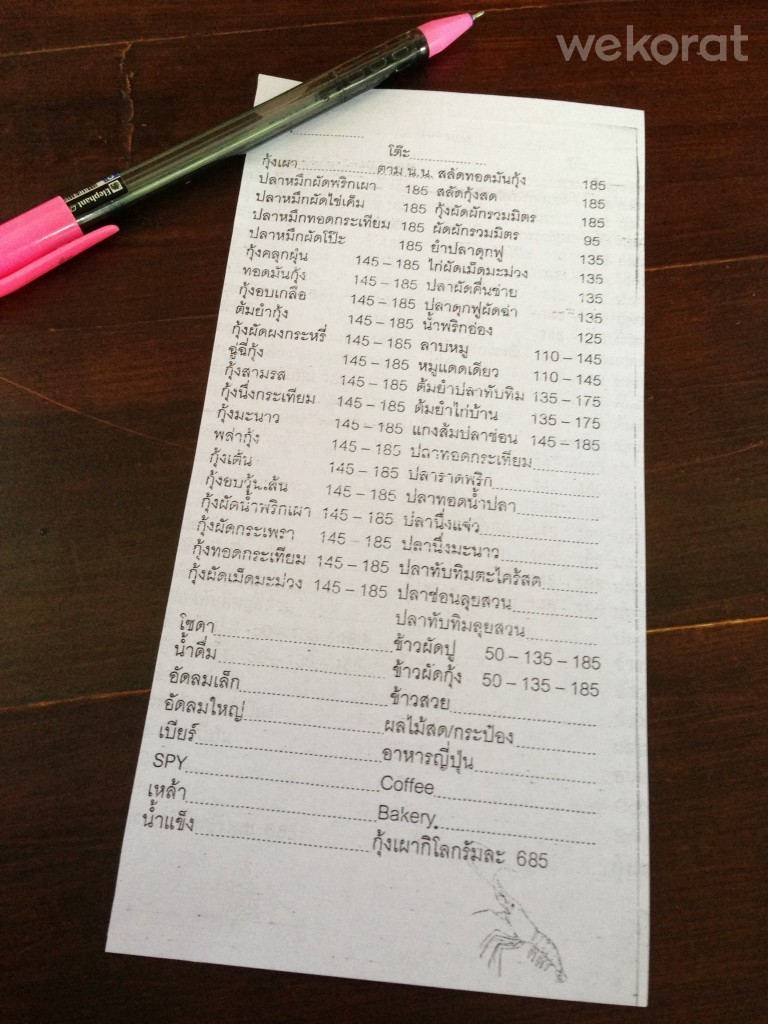 wekorat
Elephant
โต๊ะ
กุ้งเผา ตาม น.น. สลัดทอดมันกุ้ง 185
ปลาหมึกผัดพริกเผา 185 สลัดกุ้งสด 185
ปลาหมึกผัดไข่เค็ม 185 กุ้งผัดผักรวมมิตร 185
ปลาหมึกทอดกระเทียม 185 ผัดผักรวมมิตร 95
ปลาหมึกผัดโป๊ะ 185 ยำปลาดุกฟู 135
กุ้งคลุกฝุ่น 145 – 185 ไก่ผัดเม็ดมะม่วง 135
ทอดมันกุ้ง 145 – 185 ปลาผัดคื่นช่าย 135
กุ้งอบเกลือ 145 – 185 ปลาดุกฟูผัดฉ่า 135
ต้มยำกุ้ง 145 – 185 น้ำพริกอ่อง 125
กุ้งผัดผงกระหรี่ 145 – 165 ลาบหมู 110 – 145
ฉู่ฉี่กุ้ง 145 – 185 หมูแดดเดียว 110 – 145
กุ้งสามรส 145 – 185 ต้มยำปลาทับทิม 135 – 175
กุ้งนึ่งกระเทียม 145 – 185 ต้มยำไก่บ้าน 135 – 175
กุ้งมะนาว 145 – 185 แกงส้มปลาช่อน 145 – 185
พล่ากุ้ง 145 – 185 ปลาทอดกระเทียม
กุ้งเต้น 145 – 185 ปลาราดพริก
กุ้งอบวุ้นเส้น 145 – 185 ปลาทอดน้ำปลา
กุ้งผัดน้ำพริกเผา 145 – 185 ปลานึ่งแจ่ว
กุ้งผัดกระเพรา 145 – 185 ปลานึ่งมะนาว
กุ้งทอดกระเทียม 145 – 185 ปลาทับทิมตะไคร้สด
กุ้งผัดเม็ดมะม่วง 145 – 185 ปลาช่อนลุยสวน
ปลาทับทิมลุยสวน
โซดา ข้าวผัดปู 50 – 135 – 185
น้ำดื่ม ข้าวผัดกุ้ง 50 – 135 – 185
อัดลมเล็ก ข้าวสวย
อัดลมใหญ่ ผลไม้สด/กระป๋อง
เบียร์ อาหารญี่ปุ่น
SPY Coffee
เหล้า Bakery
น้ำแข็ง กุ้งเผากิโลกรัมละ 685